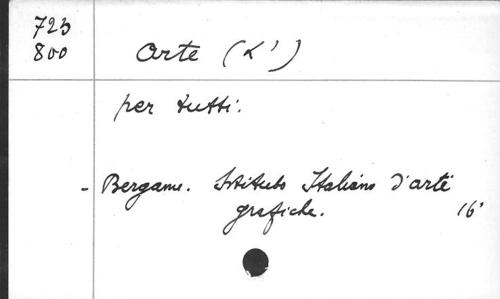 723
800
Arte (L')
per tutti.
- Bergame. Istituto Italiano d'arte
grafiche. 16°